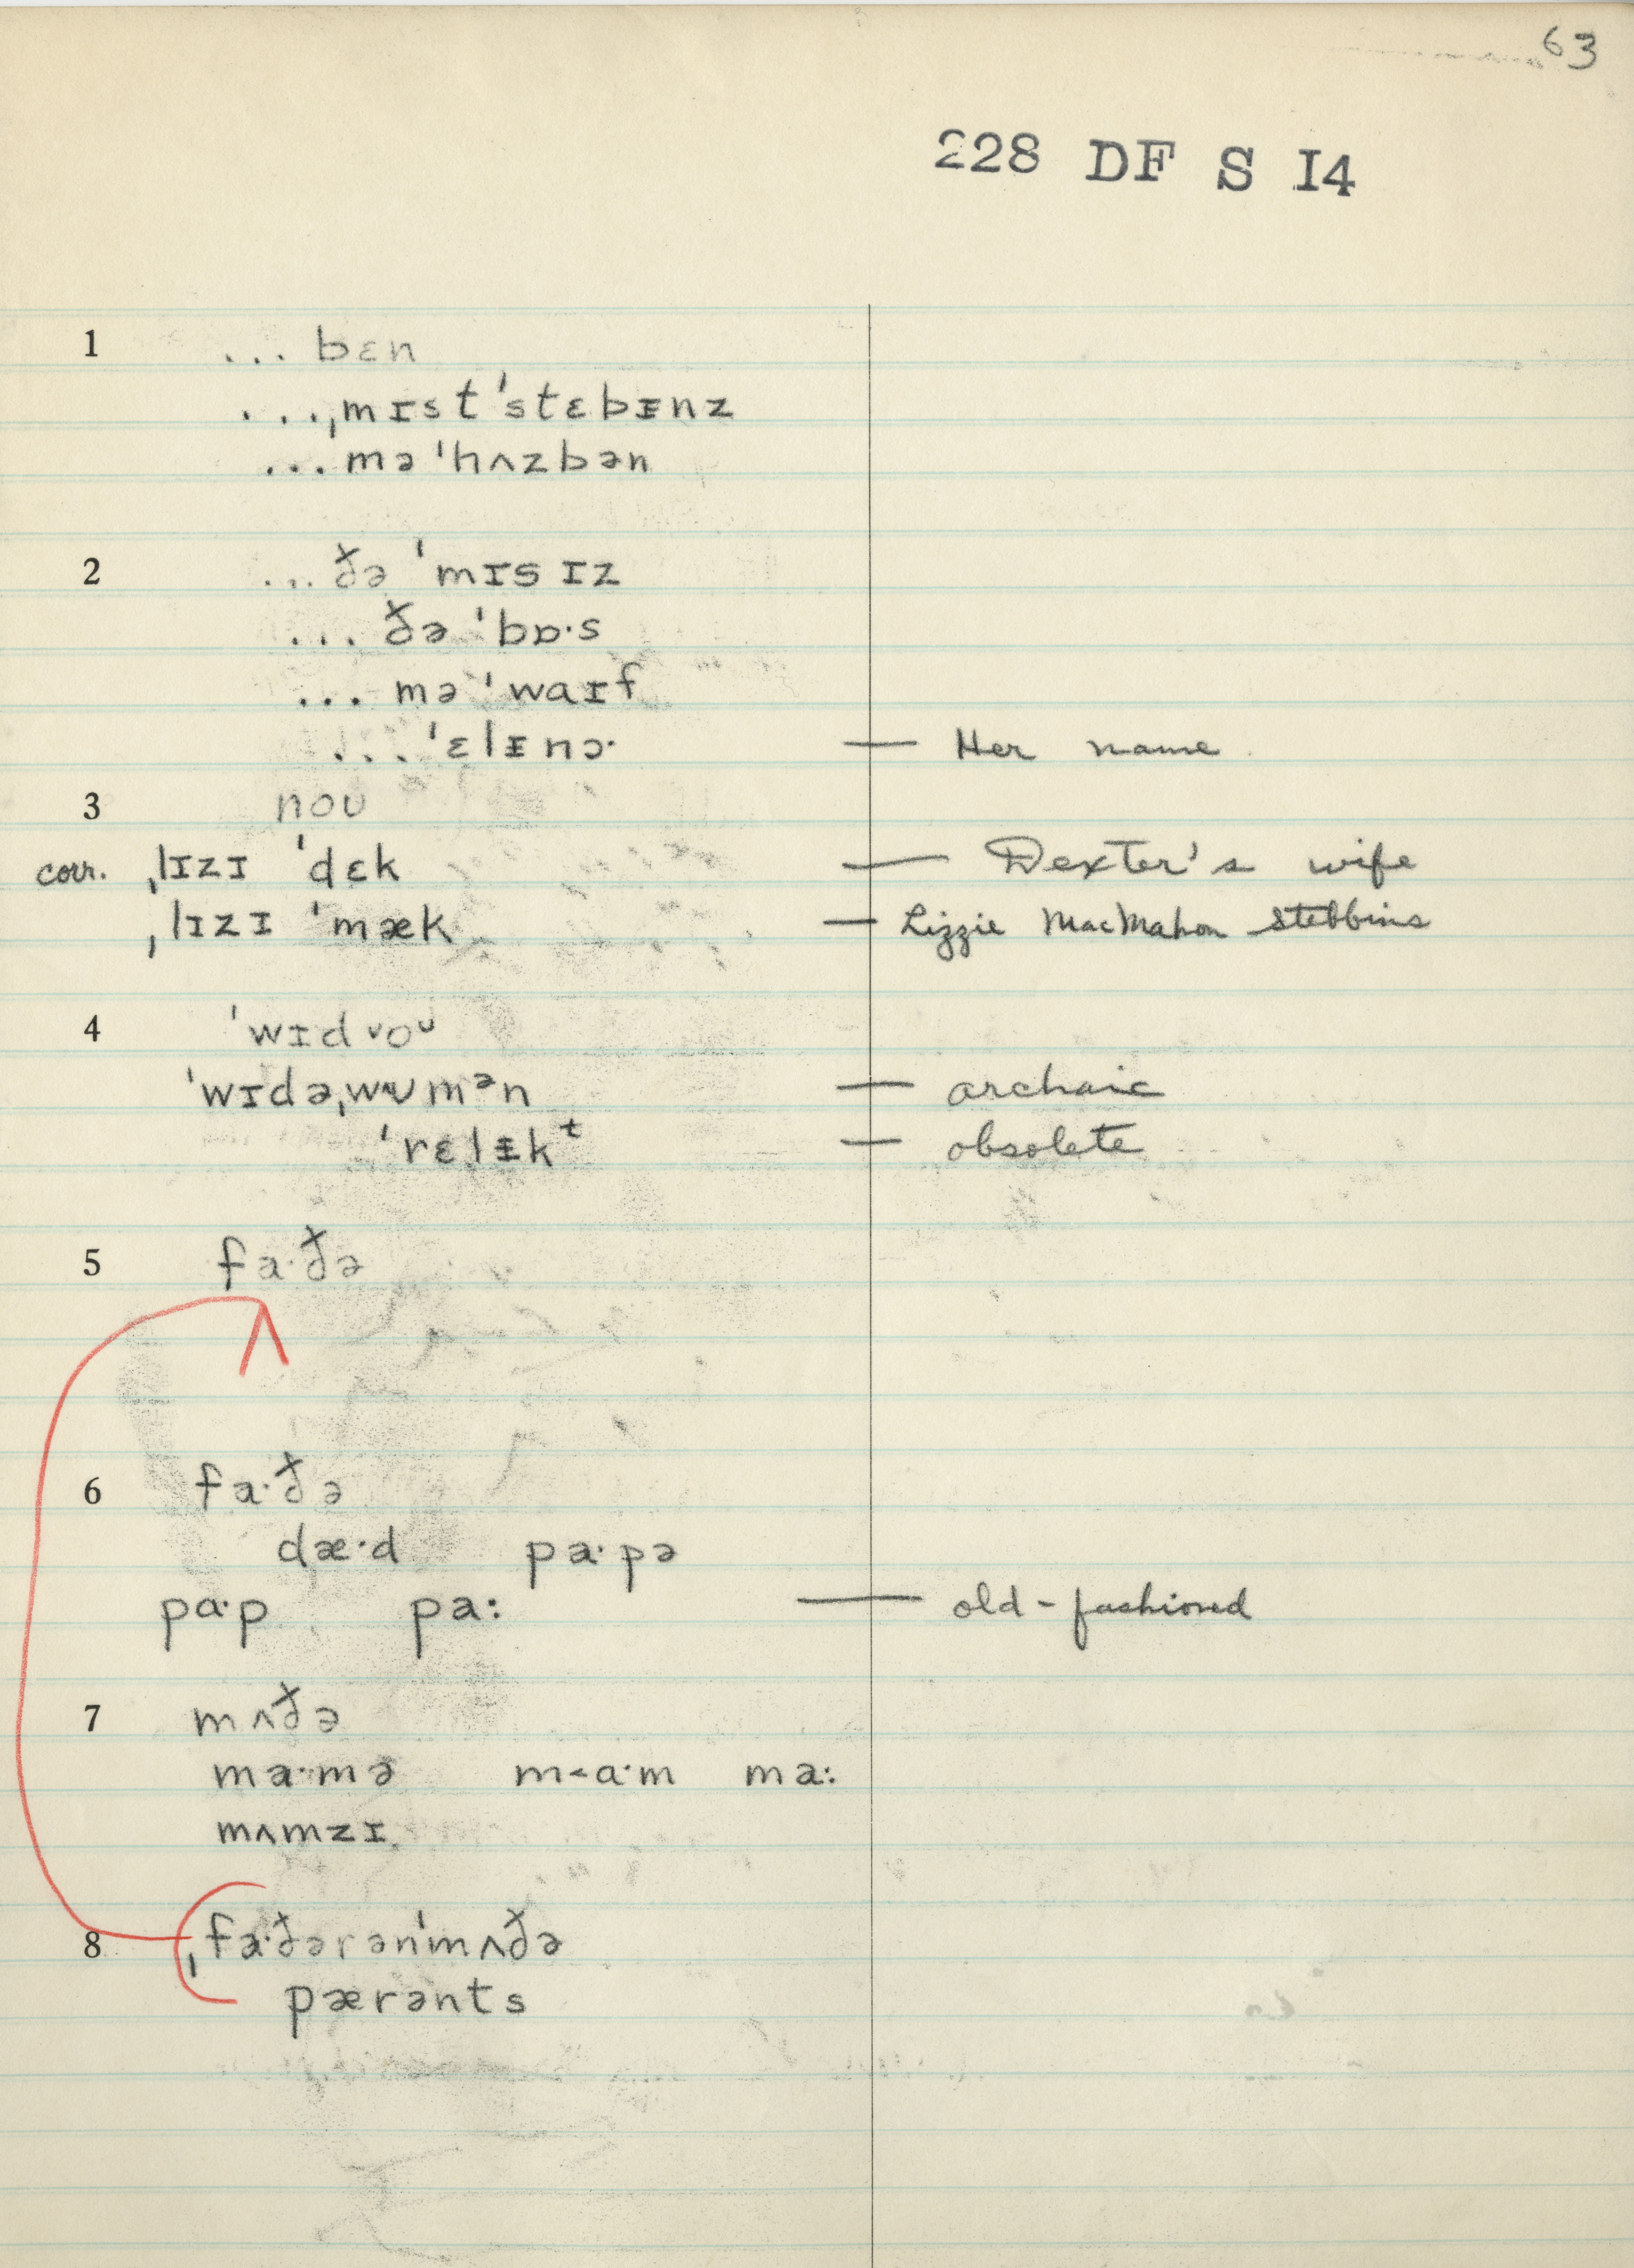 63
228 DF S I4
1 ... bɛn
...ˌmɪst ˈstɛbᵻnz
... mə ˈhʌzbən
2 ... ðə ˈmɪsɪz
... ðə ˈbɒ·s
... mə ˈwaɪf
... ˈɛlᵻnɔ· — Her name
3 noʊ
corr. ˌlɪzɪ ˈdɛk — Dexter's wife
ˌlɪzɪ ˈmæk — Lizzie MacMahon Stebbins
4 ˈwɪdᵛoᶷ
ˈwɪdəˌwʊmᵊn — archaic
ˈrɛlᵻkᵗ — obsolete
5 fa·ðə
6 fa·ðə
dæ·d pa·pə
pɑ·p pa: — old-fashioned
7 mʌðə
ma·mə m<ɑ·m ma:
mʌmzɪ
8 ˌfa·ðərənˈmʌðə
pærənts